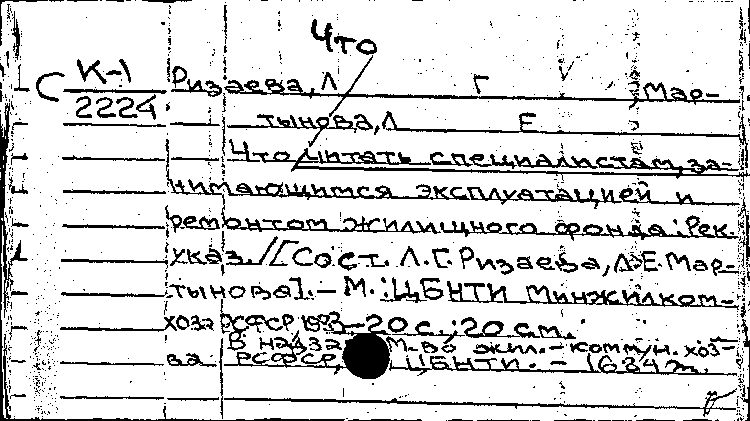 Что
С К-1 Ризаева, Л Г Мар-
2224 тынова, Л Е
Что читать специалистам, за-
нимающимся эксплуатацией и
ремонтом жилищного фонда: Рек.
указ. // [Сост. Л.Г. Ризаева, Л.Е. Мар-
тынова]. – М.: ЦБНТИ Минжилком-
хоза РСФСР, 1983 – 20 с.; 20 см.
В надзаг. М-во жил.-коммун. хоз-
ва РСФСР, ЦБНТИ. – 1684